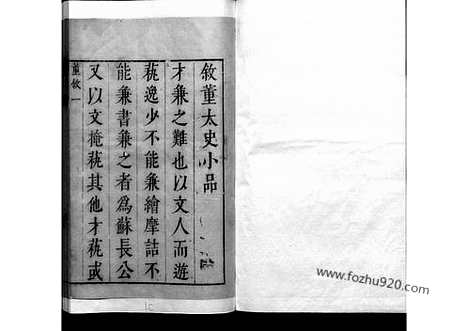 敘董太史小品
才兼之難也以文人而遊
藝逸少不能兼繪摩詰不
能兼書兼之者為蘇長公
又以文掩藝其他才藝或
董敘 一
www.fozhu920.com